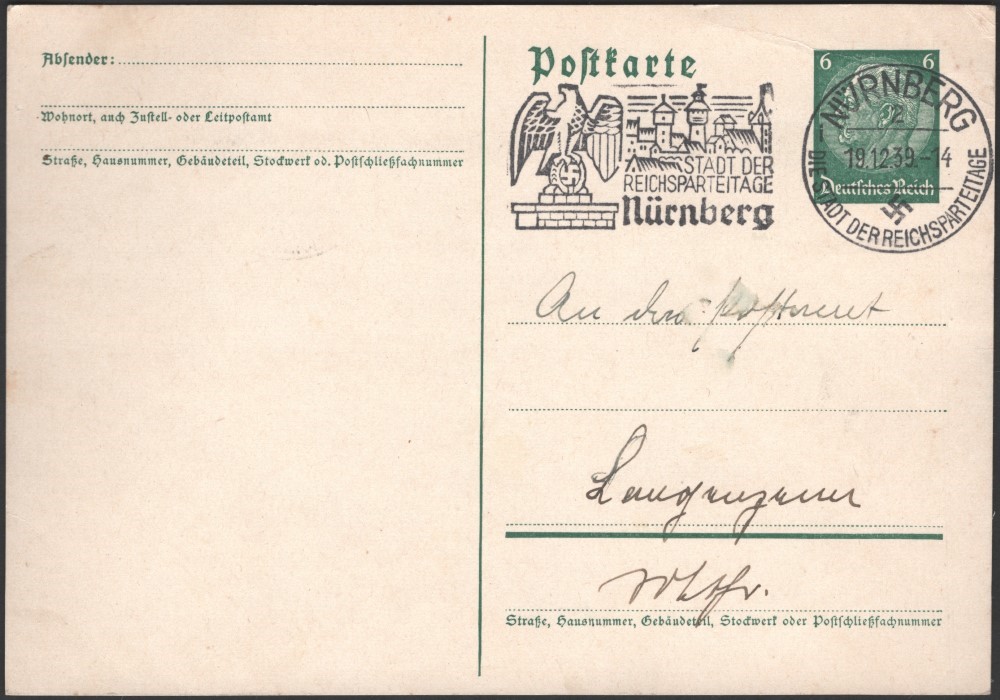 Absender:
Wohnort, auch Zustell- oder Leitpostamt
Straße, Hausnummer, Gebäudeteil, Stockwerk od. Postschließfachnummer
Postkarte
STADT DER
REICHSPARTEITAGE
Nürnberg
6 6
Deutsches Reich
NÜRNBERG
2
19.12.39.-14
DIE STADT DER REICHSPARTEITAGE
An das Postamt
Langenzenn
Straße, Hausnummer, Gebäudeteil, Stockwerk oder Postschließfachnummer